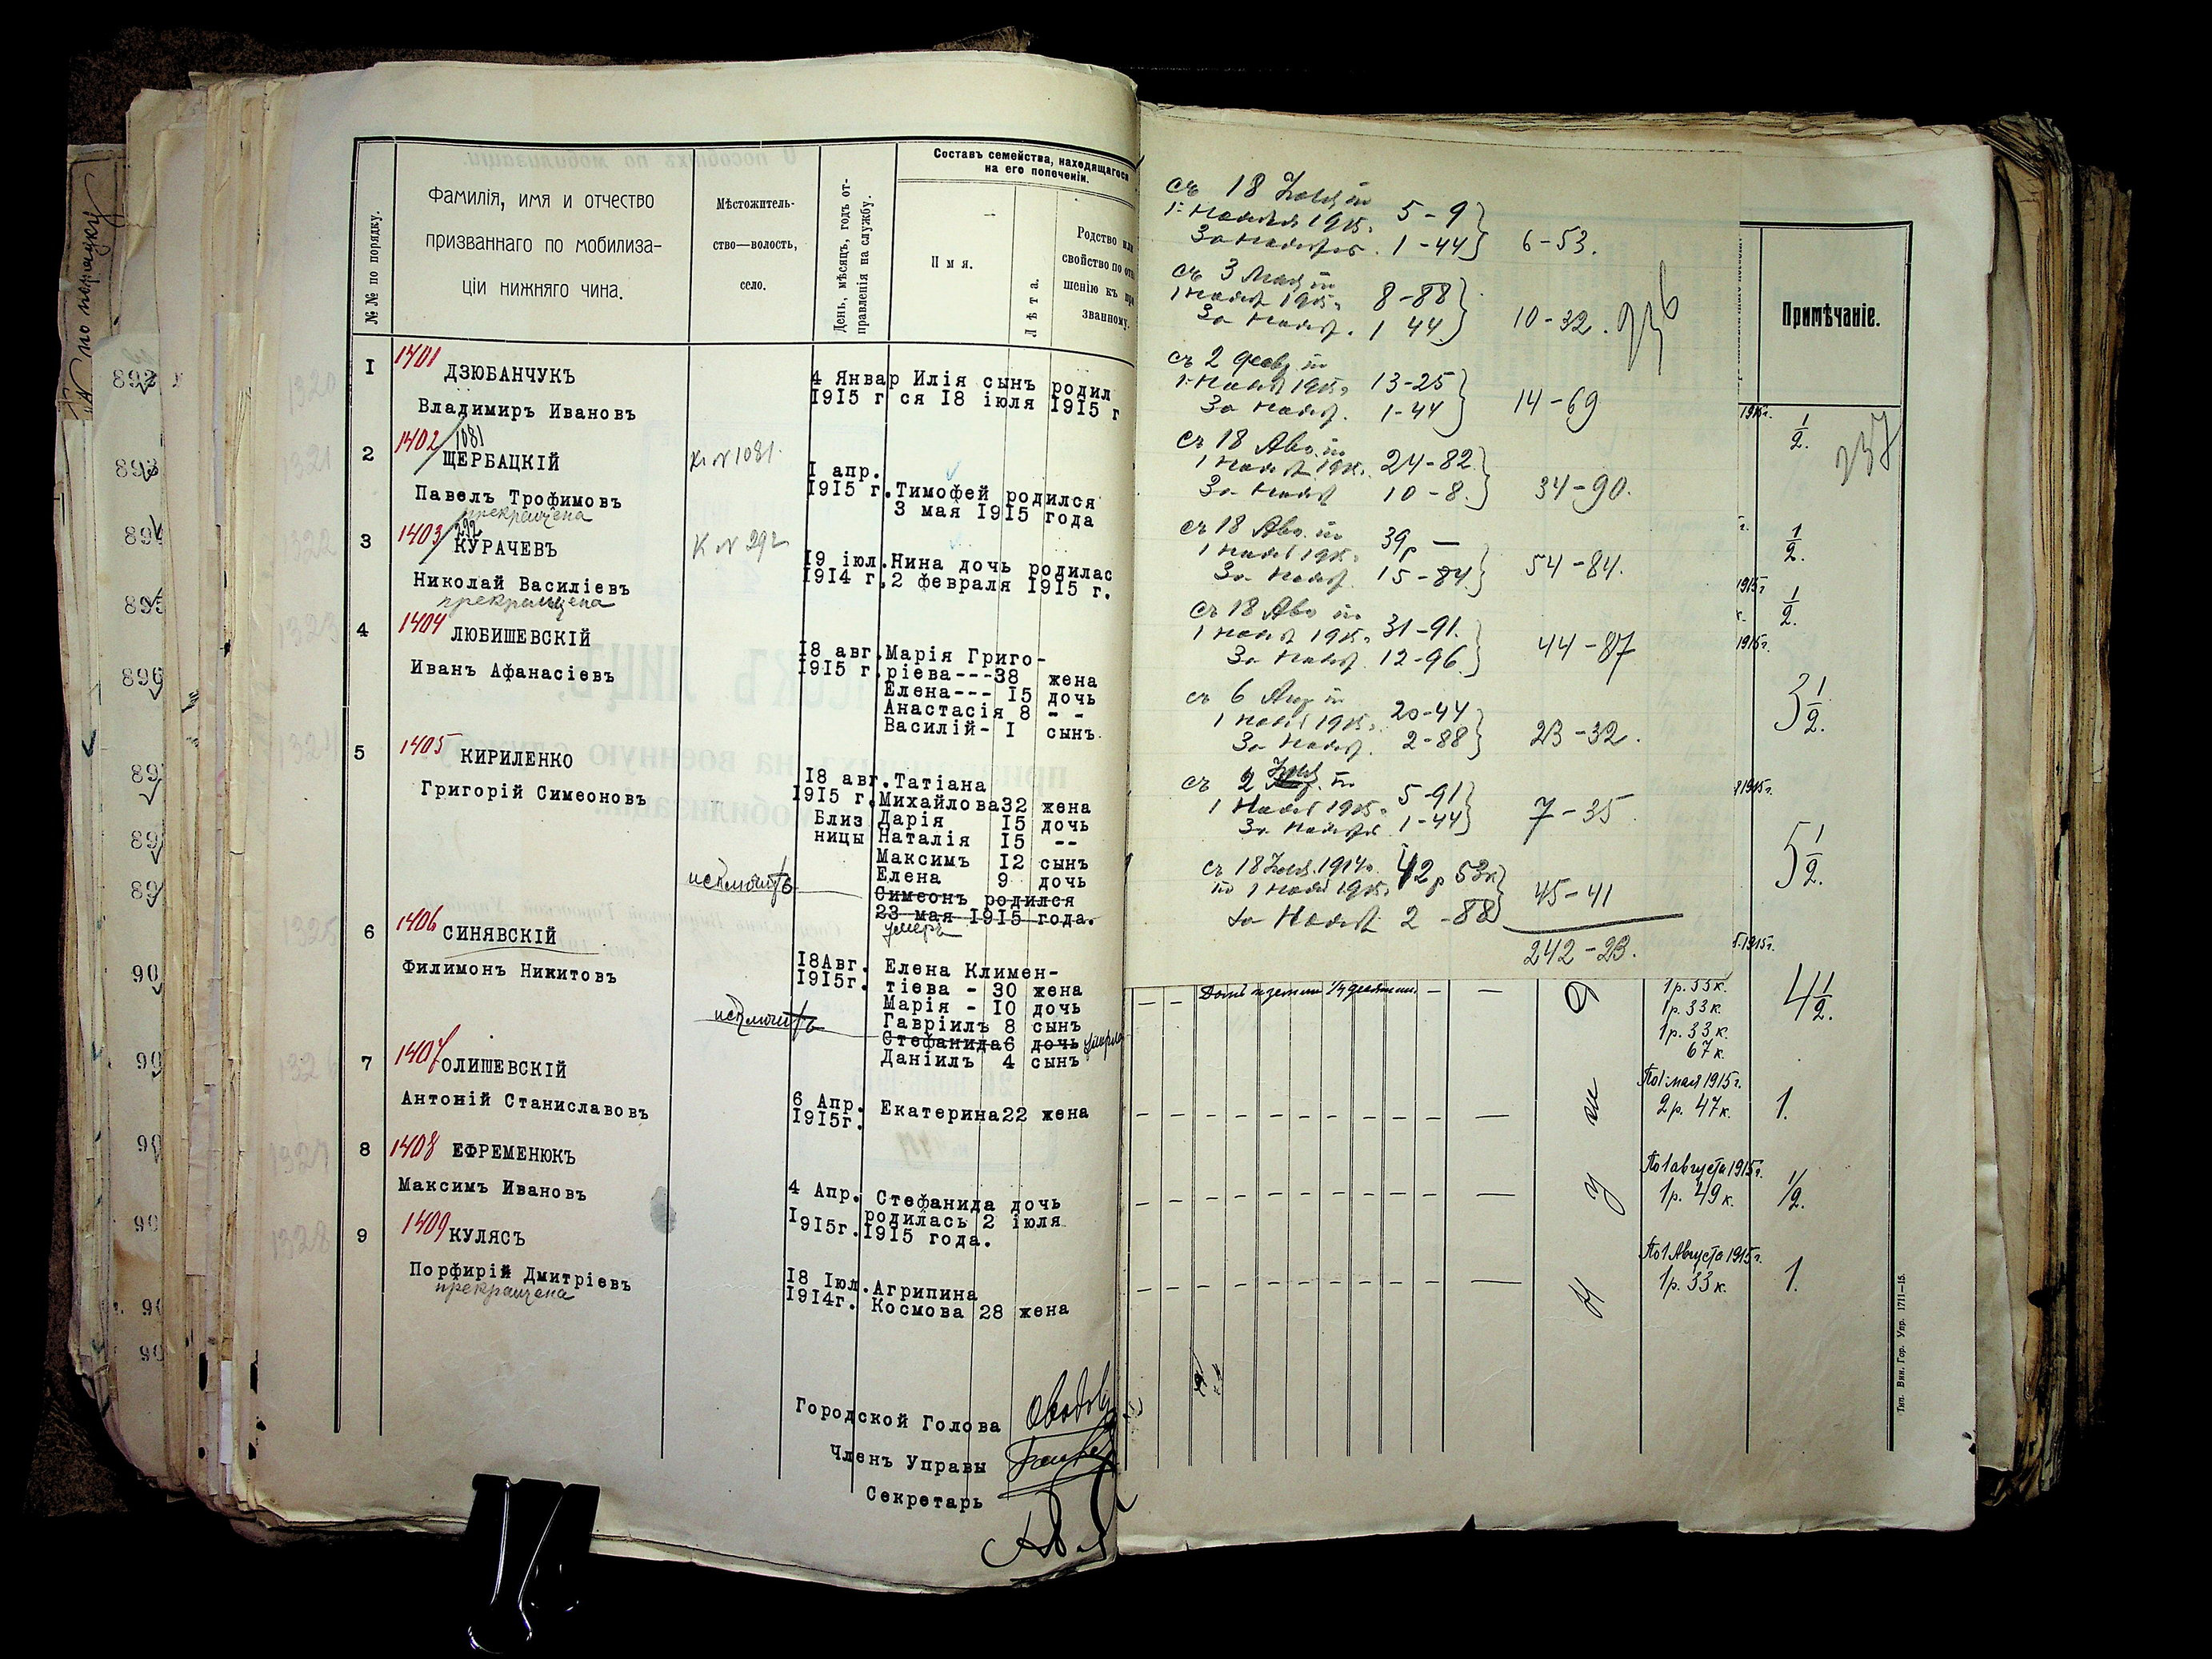 Фамилія, имя и отчество
призваннаго по мобилиза-
ціи нижняго чина.
№№ по порядку.
Мѣстожитель-
ство—волость,
село.
День, мѣсяцъ, годъ от-
правленія на службу.
Составъ семейства, находящагося
на его попеченіи.
Имя.
Лѣта.
Родство или
свойство по отн
шенію къ при
званному.
1 1401 ДЗЮБАНЧУКЪ
Владимиръ Ивановъ
4 Январ Илія сынъ родил
1915 г ся 18 іюля 1915 г
2 1402/1081 ЩЕРБАЦКІЙ
Павелъ Трофимовъ
прекращена
К № 1081.
1 апр.
1915 г. Тимофей родился
3 мая 1915 года
3 1403/292 КУРАЧЕВЪ
Николай Василіевъ
прекращена
К № 292
19 іюл. Нина дочь родилас
1914 г. 2 февраля 1915 г.
4 1404 ЛЮБИШЕВСКІЙ
Иванъ Афанасіевъ
18 авг. Марія Григо-
1915 г. ріева---38 жена
Елена--- 15 дочь
Анастасія 8 - -
Василій- 1 сынъ
5 1405 КИРИЛЕНКО
Григорій Симеоновъ
18 авг. Татіана
1915 г. Михайлова 32 жена
Близ Дарія 15 дочь
ницы Наталія 15 --
Максимъ 12 сынъ
Елена 9 дочь
исключить
Симеонъ родился
23 мая 1915 года.
умеръ
6 1406 СИНЯВСКІЙ
Филимонъ Никитовъ
18Авг. Елена Климен-
1915г. тіева - 30 жена
Марія - 10 дочь
Гавріилъ 8 сынъ
исключить
Стефанида 6 дочь умерла
Даніилъ 4 сынъ
7 1407 ОЛИШЕВСКІЙ
Антоній Станиславовъ
6 Апр. Екатерина 22 жена
1915г.
8 1408 ЕФРЕМЕНЮКЪ
Максимъ Ивановъ
4 Апр. Стефанида дочь
родилась 2 іюля
1915г. 1915 года.
9 1409 КУЛЯСЪ
Порфирій Дмитріевъ
прекращена
18 Іюл. Агрипина
1914г. Космова 28 жена
Городской Голова
Членъ Управы
Секретарь
съ 18 Іюля по
1 Ноября 1915г. 5-9
За Ноябрь. 1-44 6-53.
съ 3 Мая по
1 Нояб 1915г. 8-88
За Нояб. 1 44. 10-32. 236
съ 2 февр по
1 Нояб 1915г. 13-25
За Нояб. 1-44 14-69
съ 18 Авг. по
1 Нояб 1915. 24-82.
За Нояб 10-8. 34-90.
съ 18 Авг. по
1 Нояб 1915. 39р —
За Нояб. 15-84 54-84.
съ 18 Авг по
1 Нояб 1915г. 31-91.
За Нояб. 12-96. 44-87
съ 6 Апр по
1 Нояб 1915г. 20-44
За Нояб. 2-88 23-32.
съ 2 Іюля по
1 Нояб 1915г. 5-91
За Ноябрь. 1-44 7-35.
съ 18 Іюля 1914г. 42р 53к
по 1 Нояб 1915г.
За Нояб. 2-88 45-41
242-23.
Примѣчаніе.
237
1915г. 1/2.
1/2.
1915г 1/2.
1915г. 3 1/2.
1915г. 5 1/2.
1915г. 4 1/2.
Домъ и земли 1/4 десятин.
1р. 33к.
1р. 33к.
1р. 33к.
67к.
По 1 мая 1915г.
2р. 47к. 1.
По 1 августа 1915г.
1р. 49к. 1/2.
По 1 Августа 1915г.
1р. 33к. 1.
Тип. Вин. Гор. Упр. 1711—15.